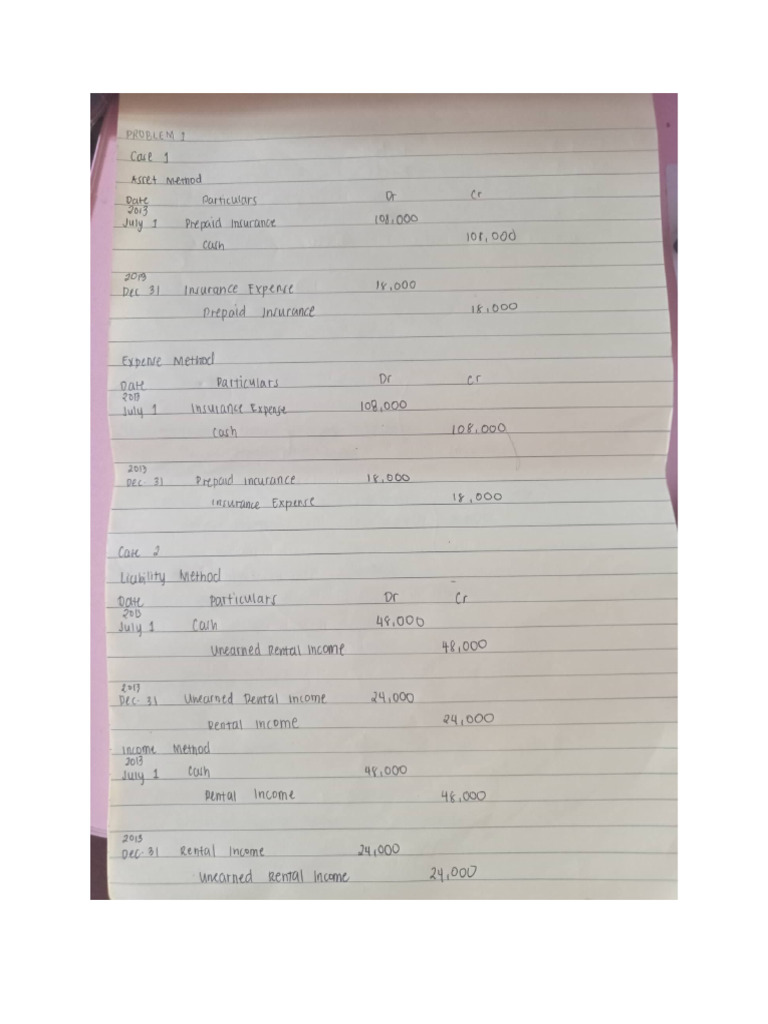 PROBLEM 1
Case 1
Asset Method
Date Particulars Dr Cr
2013
July 1 Prepaid Insurance 108,000
Cash 108,000
2013
Dec 31 Insurance Expense 18,000
Prepaid Insurance 18,000
Expense Method
Date Particulars Dr Cr
2013
July 1 Insurance Expense 108,000
Cash 108,000
2013
Dec. 31 Prepaid Insurance 18,000
Insurance Expense 18,000
Case 2
Liability Method
Date Particulars Dr Cr
2013
July 1 Cash 48,000
Unearned Rental Income 48,000
2013
Dec. 31 Unearned Rental Income 24,000
Rental Income 24,000
Income Method
2013
July 1 Cash 48,000
Rental Income 48,000
2013
Dec. 31 Rental Income 24,000
Unearned Rental Income 24,000